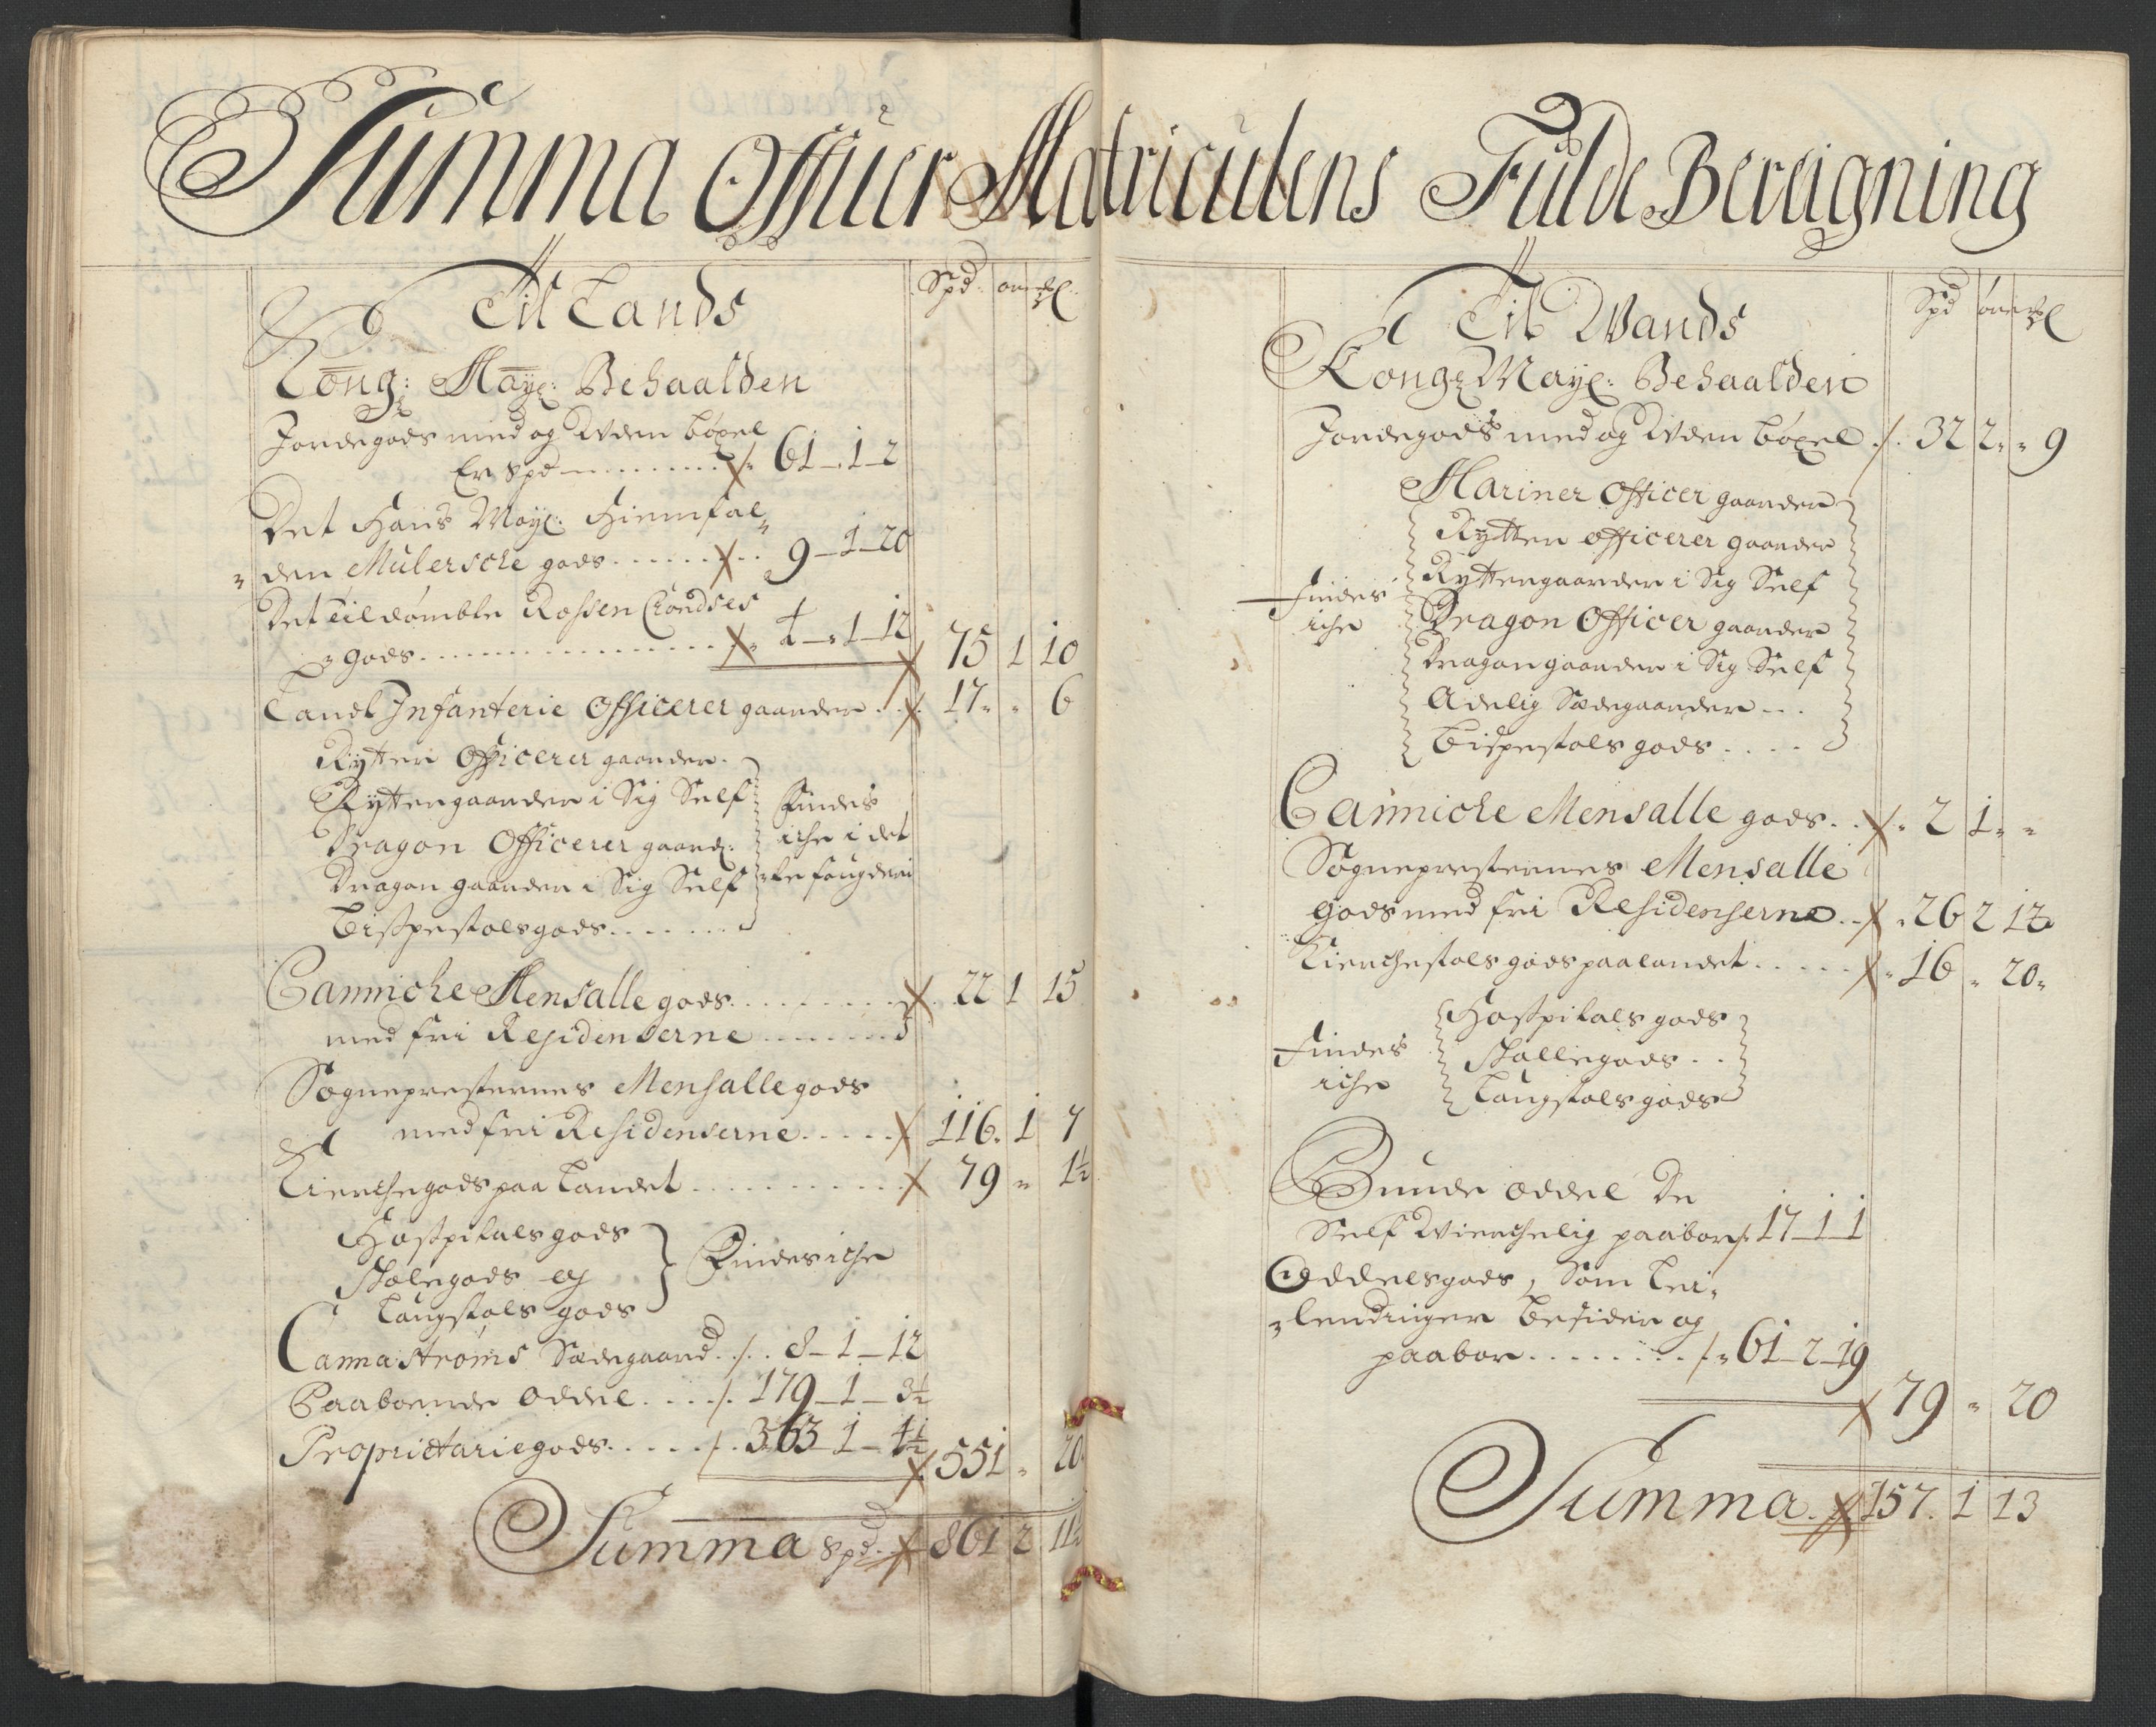 Summa Offuer Matriculens Fulde Bereigning
Til Lands
Spd ører ml
Kong: May: Behaalden
Jordegods med og Uden böxel
Er Spd ./. 61_1_2
Det Hans May: Hiemfal„
„den Mulersche gods ./. 9_1_20
Det Tildömbte
gods ./. 4_1_12
75 1 10
Landt Infanterie Officerer gaarder ./. 17 „ 6
Rytter Officerer gaarder
Ryttergaarder i Sig Self
Dragon Officerer gaard:
Dragon gaarder i Sig Self
Bispestols gods
Findes
iche i det
„te fougderi
Cannicke Mensalle gods ./. 22 1 15
med fri Residenserne
Sogneprესternes Mensalle gods
med fri Residenserne ./. 116. 1 7
Kierchegods paa Landet ./. 79 „ 1½
Hospitals gods
Skolegods og
Laugstols gods
Findes iche
Cammastrøms Sædegaard ./. 8_1_12
Paaboende Oddel ./. 179_1_3½
Proprietarie gods ./. 363_1_4½
551 „ 20
Summa Spd. ./. 861 2 11½
Til Wands
Spd ører ml
Kong: May: Behaalden
Jordegods med og Uden böxel ./. 32 2 „ 9
Mariner Officer gaarder
Rytter officerer gaarder
Ryttergaarder i Sig Self
Dragon Officer gaarder
Dragongaarder i Sig Self
Adelig Sædegaarder
Bispestols gods
Findes
iche
Cannicke Mensalle gods ./. 2 1 „
Sogneprესternes Mensalle
gods med fri Residenserne ./. 26 2 12
Kierchestols gods paa landet ./. 16 „ 20
Hospitals gods
Skollegods
Laugstols gods
Findes
iche
Bunde Oddel De
Self Wierchelig paaboer ./. 17_1_1
Oddels gods, Som Lei„
„lendinger besider og
paaboer ./. 61_2_19
79 „ 20
Summa ./. 157. 1 13